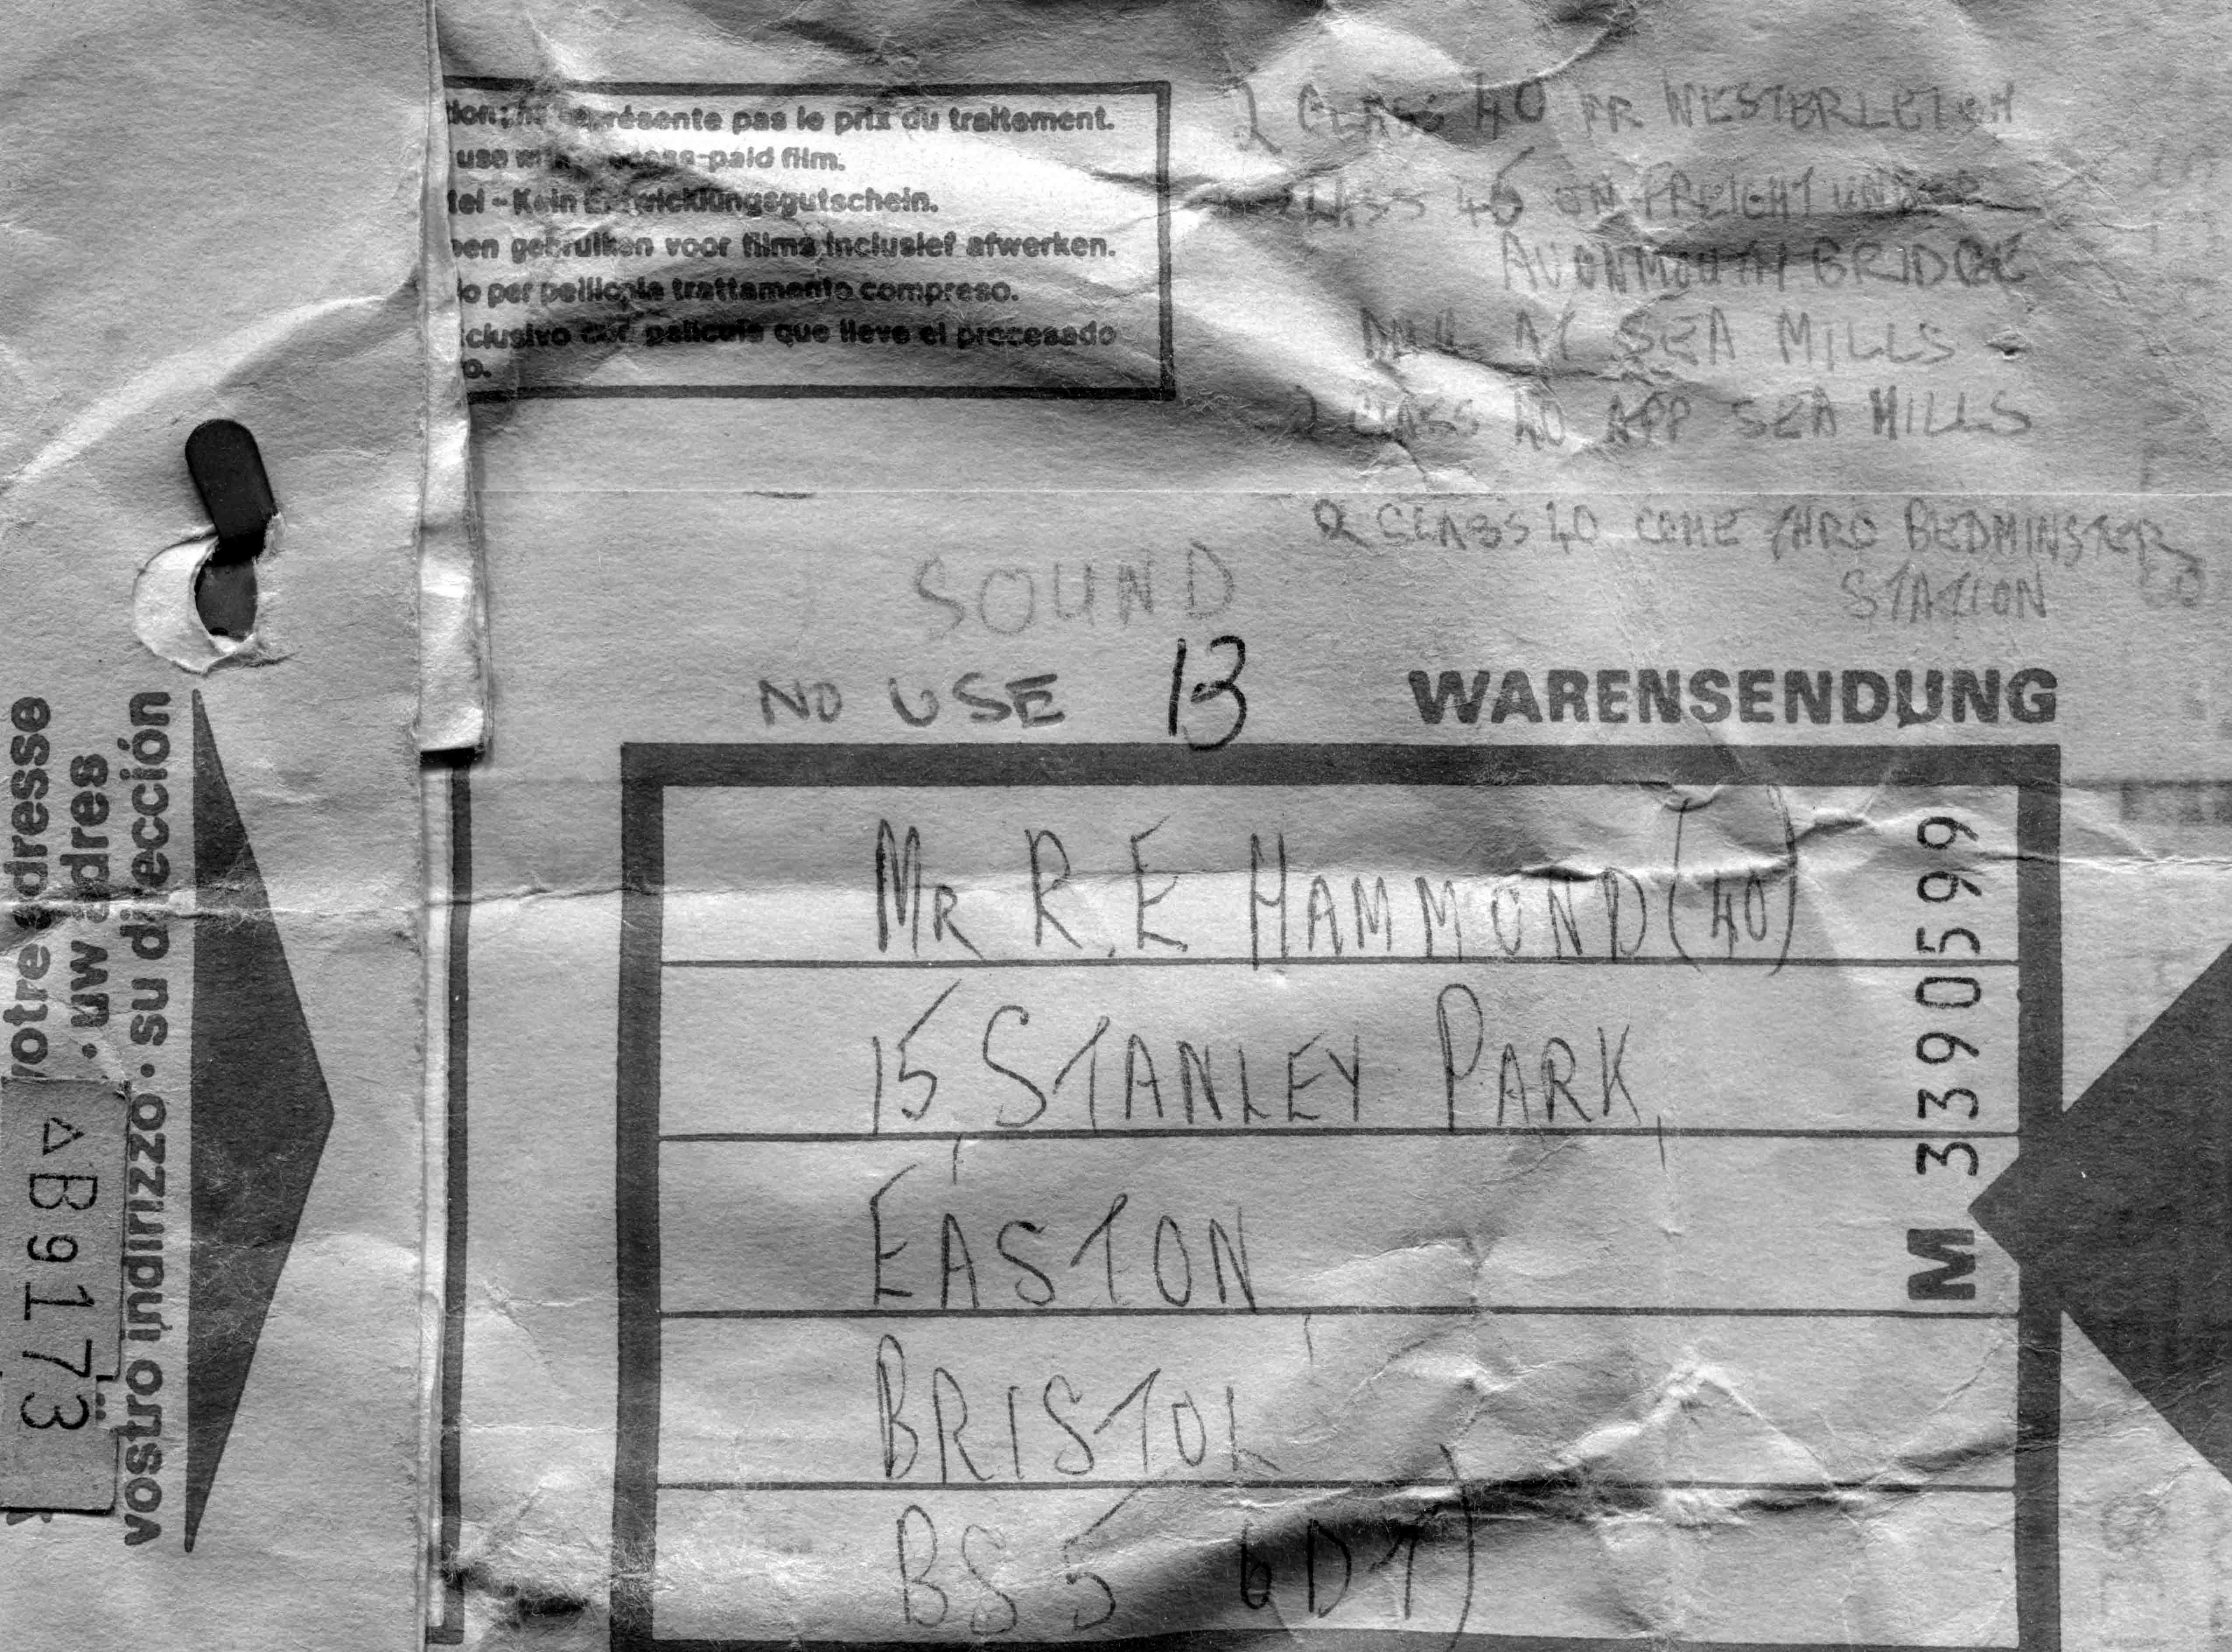 représente pas le prix du traitement.
use paid film.
tel - Kein Entwicklungsgutschein.
gebruiken voor films inclusief afwerken.
per pellicola trattamento compreso.
película que lleve el procesado
o.
2 CLASS 40 FR WESTERLEIGH
CLASS 46 ON FREIGHT UNDER
AVONMOUTH BRIDGE
AT SEA MILLS
2 CLASS 40 APP SEA MILLS
2 CLASS 40 COME THRO BEDMINSTER
STATION
SOUND
NO USE 13
WARENSENDUNG
MR R.E HAMMOND (40)
15, STANLEY PARK,
EASTON,
BRISTOL
BS5 6DT
M 3390599
votre adresse
· uw adres
vostro indirizzo · su dirección
△B9173